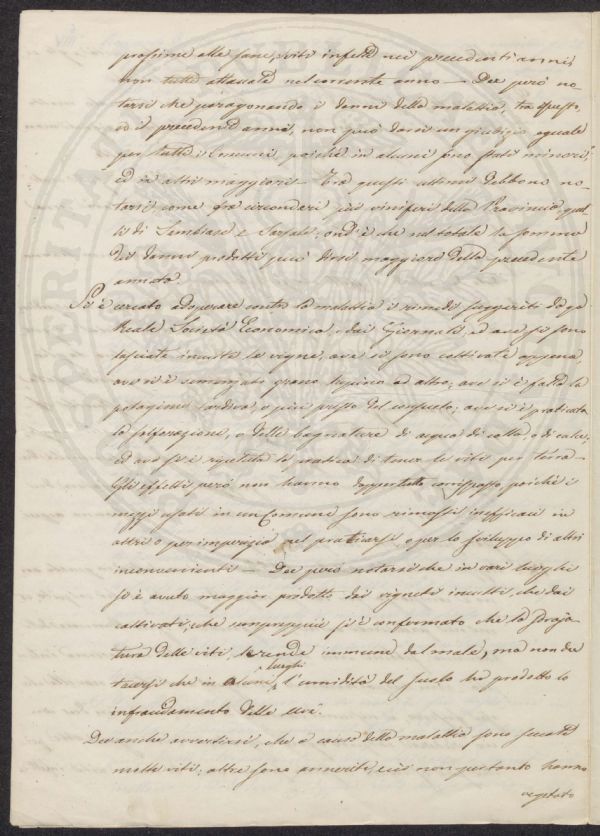 prossime alle sane, viti infette nei precedenti anni,
non tutte attaccate nel corrente anno — Dee però no-
tarsi che paragonando i danni della malattia, tra questo,
ed i precedenti anni, non può darsi un giudizio eguale
per tutti i Comuni, poichè in alcuni sono stati minori,
ed in altri maggiori — Tra questi ultimi debbono no-
tarsi, come fra circondari più viniferi della Provincia, quel-
li di Sambiase e ond'è che nel totale la somma
dei danni prodotti può dirsi maggiore della precedente
annata.
Si è cercato adoperare contro la malattia i rimedi suggeriti da
Reale Società Economica, e dai Giornali, ed ove si sono
lasciate incolte le vigne, ove si sono coltivate appena,
ove vi è seminato grano lupino ed altro; ove si è fatta la
potagione tardiva, o più presto del consueto; ove si è praticata
la solforazione, o delle bagnature di acqua di colla, o di calce,
ed ove si è ripetuta la pratica di tener le viti per terra —
Gli effetti però non hanno dappertutto corrisposto poichè i
mezzi usati in un Comune sono riusciti inefficaci in
altri o per imperizia nel praticarsi, o per lo sviluppo di altri
inconvenienti — Dee però notarsi che in vari luoghi
si è avuto maggior prodotto dai vigneti incolti, che dai
coltivati, che si è confermato che la
tura delle viti, le rende immune dal male, ma non dee
tacersi che in alcuni luoghi l'umidità del suolo ha prodotto lo
infracidamento delle uve.
Dee anche avvertirsi, che a causa della malattia sono seccate
molte viti; altre sono annerite, ciò non pertanto hanno
vegetato